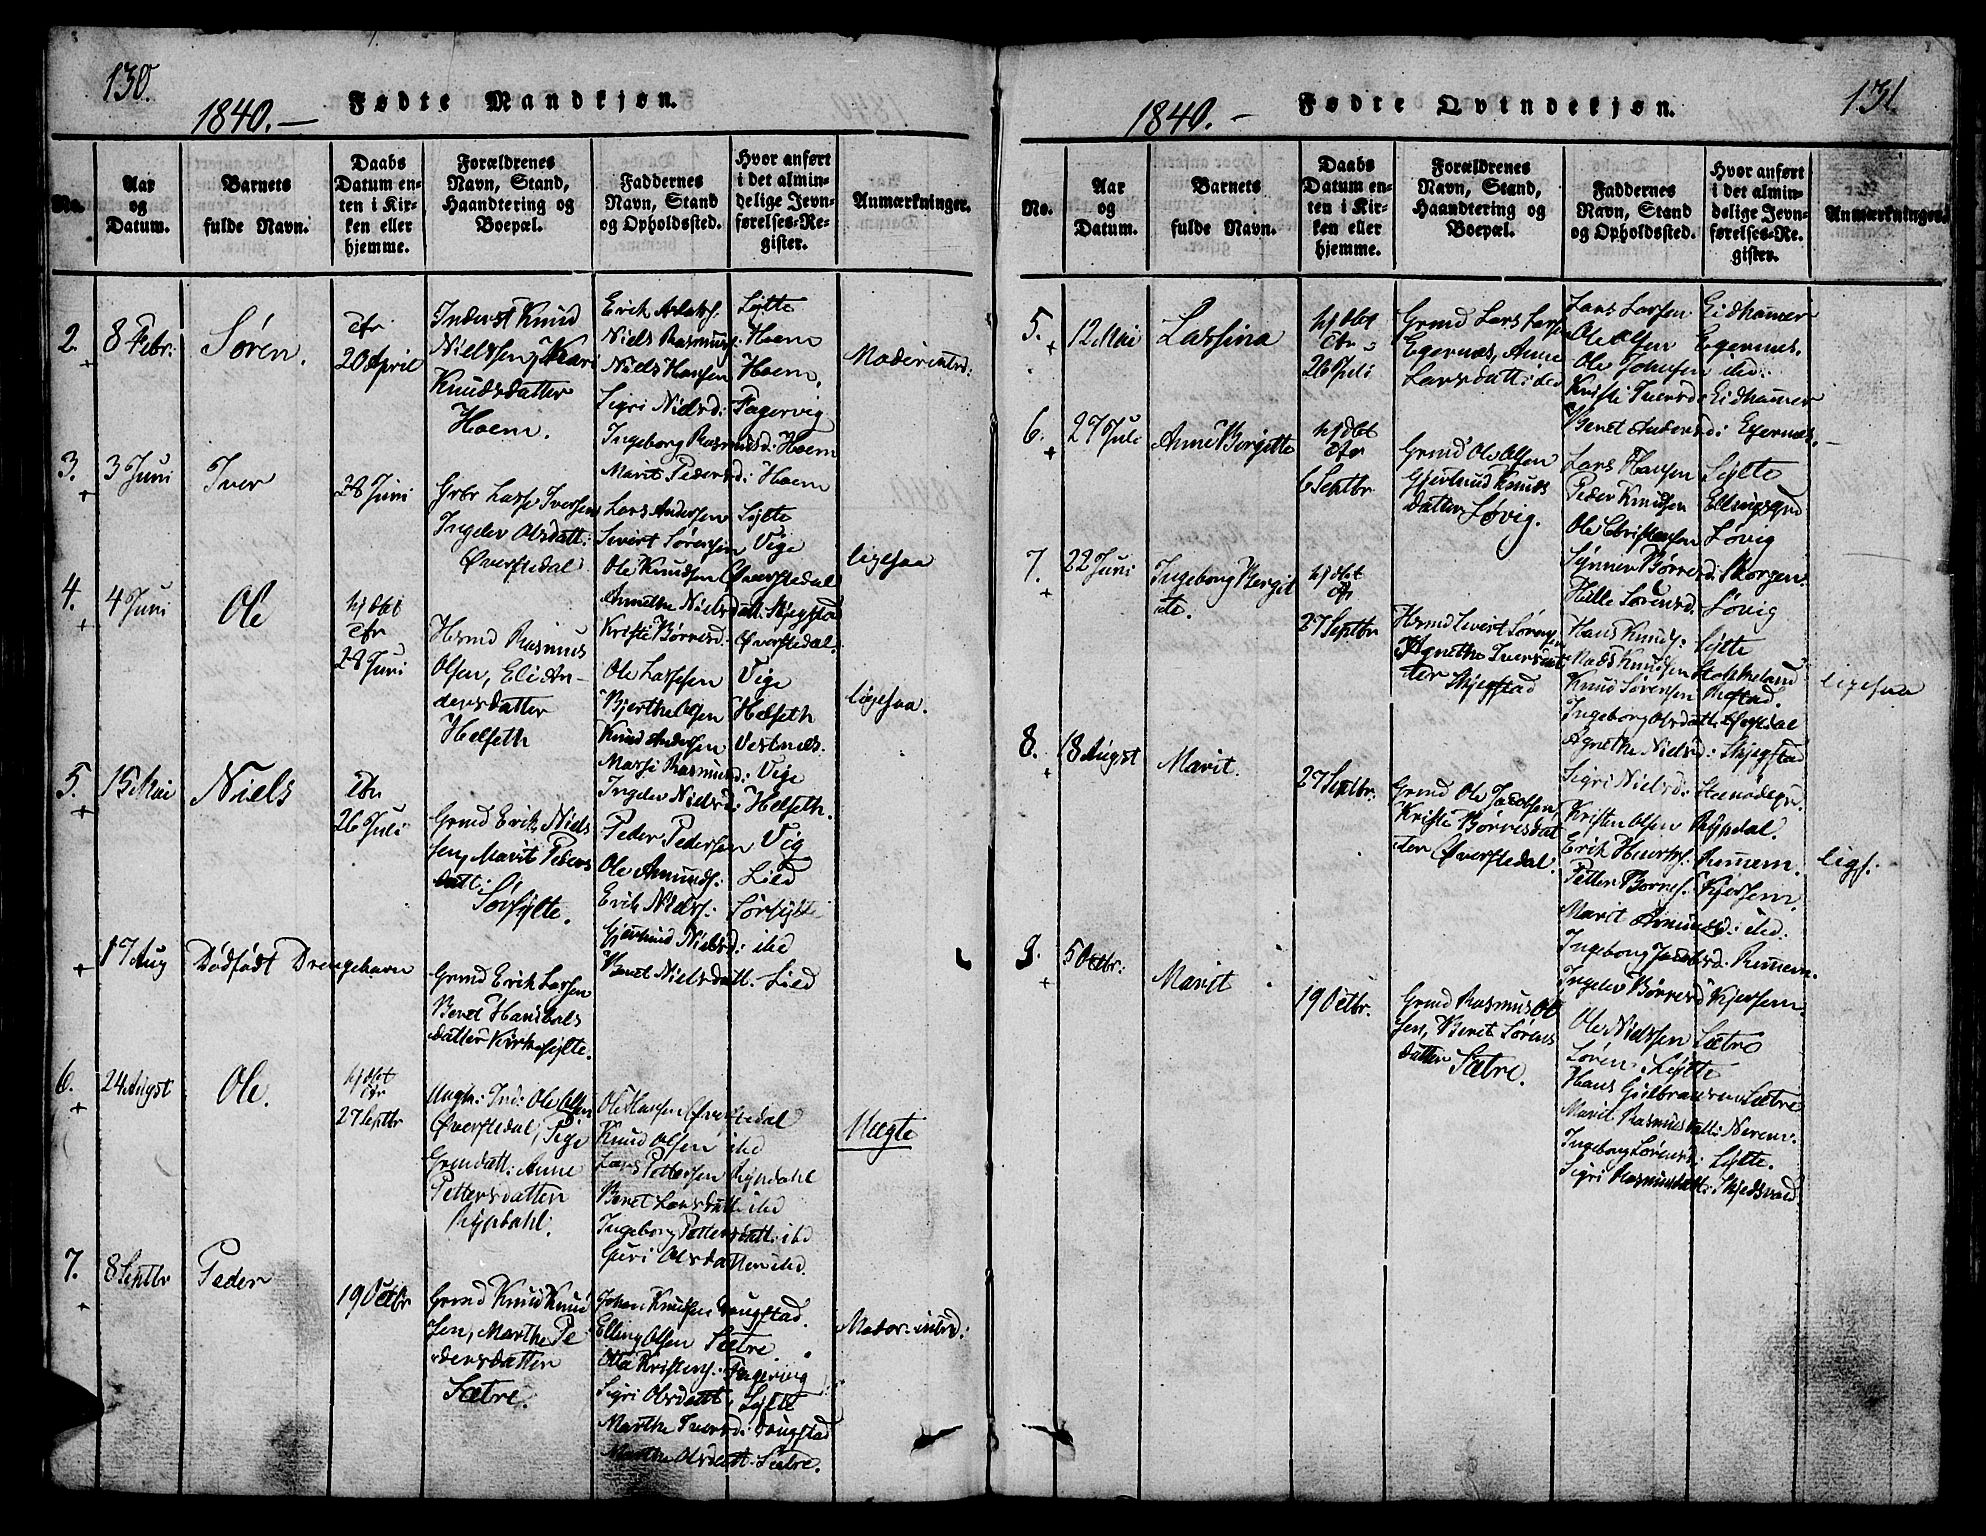 130.
1840.—
Fødte Mandkjøn.
No.
Aar og Datum.
Barnets fulde Navn.
Daabs Datum enten i Kirken eller hjemme.
Forældrenes Navn, Stand, Haandtering og Boepæl.
Faddernes Navn, Stand og Opholdssted.
Hvor anført i det almindelige Jevnførelses-Register.
Anmærkninger.
2.
8 Febr:
Søren.
20 April
Inderst Knud
Nielssen, Kari
Knudsdatter
Hoem.
Sylte
Niels Rasmuss: Hoem
Niels Hansen Hoem.
Sigri Nielsd: Fagervig
Ingeborg Rasmusd: Hoem
Marit Pedersd: Hoem
3.
3 Juni
Iver
28 Juni
Grbr Lasse Iversen
Ingelev Olsdatt:
Øverstedal
Lars Andersen Sylte
Sivert Sørensen Vige
Ole Knudsen Øverstedal
Anethe Nielsdatt Skjegstad
Kristi Børresd: Øverstedal.
ligesaa
4.
4 Juni
Ole
hj dbt
28 Juni
Hsmd Rasmus
Olsen, Eli An-
dersdatter
Helseth
Ole Lassesen Vige
Bjerthe Olsen Helseth
Knud Andersen Vestnæs.
Massi Rasmusd: Vige
Ingelev Nielsd: Helseth.
ligesaa.
5.
15 Mai
Niels
26 Juli
Grmd Erik Niels
sen, Marit Peders
datt:
Sørsylte.
Peder Pedersen Vig
Ole Amunds: Lied
Erik Nielss: Sørsylte
Gjertrud Nielsd: ibd
Beret Nielsdatt. Lied
17 Aug
Dødfødt Drengebarn
Grmd Erik Larsen
Beret Handbals
datter Kirkesylte.
6.
24 Augst
Ole.
hj dbt
27 Septbr
Ungk: Ind: Ole Olsen
Øverstedal, Pige
Grmdatt: Anne
Pettersdatter
Rypdahl.
Ole Hansen Øverstedal
Knud Olsen ibd
Lars Pettersen Rypdahl
Beret Larsdatt: ibd
Ingeborg Pettersdatt: ibd
Guri Olsdatter ibd.
Uægte
7.
8 Septbr
Peder
19 Octbr
Grmd Knud Knud
sen, Marthe Pe
dersdatter
Sætre.
Johan Knudsen Dougstad.
Elling Olsen Sætre
Otto Kristens: Fagervig
Sigri Olsdatt: Sylte
Marthe Iversd: Dougstad
Marthe Olsdatt: Sætre.
131.
1840.-
Fødte Qvindekjøn.
No.
Aar og Datum.
Barnets fulde Navn.
Daabs Datum enten i Kirken eller hjemme.
Forældrenes Navn, Stand, Haandtering og Boepæl.
Faddernes Navn, Stand og Opholdssted.
Hvor anført i det almindelige Jevnførelses-Register.
Anmærkninger.
5.
12 Mai
Lassina
hj dbt
26 Juli
Grmd Lars Lars
Egernæs, Anne
Larsdatt: ibd
Lars Larsen Eidhamer
Ole Olsen Egernæs.
Ole Johnsen ibd:
Kristi Iversd: Eidhamer
Beret Andersd: Egernæs.
6.
27 Juli
Anne Birgitte
hj dbt
6 Septbr
Grmd Ole Olsen
Gjertrud Knuds
datter Løvig.
Lars Hansen Sylte
Peder Knudsen Ellingsgrd
Ole Christensen Løvig
Synnev Børresd: Skorgen.
Hille Sørensd. Løvig
7.
22 Juni
Ingeborg Bergit
te.
hj dbt
27 Septbr
Hsmd Sivert Sørensen
Agnethe Iversdat
ter Skjegstad
Hans Knuds: Sylte
Mads Knudsen Stokkeland
Knud Sørensen Rostad.
Ingeborg Olsdatt: Rypdal
Agnethe Nielsd: Skjegstad
ligesaa
8.
18 Augst
Marit.
27 Septbr:
Grmd Ole Jacobsen,
Kristi Børresdat
ter Øverstedal.
Kristen Olsen Rypdal.
Remem.
Petter Børres: Kjersem.
Marit Amundsd: ibd:
Ingeborg Jacobsd: Remem.
Ingelev Børresd Kjersem.
ligs.
9.
5 Octbr:
Marit
19 Octbr.
Grmd Rasmus Ol
sen, Beret Sørens
datter Sætre.
Ole Nielssen Sætre
Søren Sylte
Hans Gulbransen Sætre
Marit Rasmusdatt:
Ingeborg Sørensd: Sylte.
Sigri Rasmusdatt: Skjedsvold